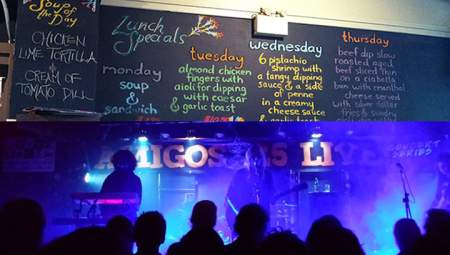 Soup of
the Day
CHICKEN
LIME TORTILLA
CREAM OF
TOMATO DILL
Lunch
Specials
monday
soup
&
sandwich
tuesday
almond chicken
fingers with
aioli for dipping
with caesar
& garlic toast
wednesday
6 pistachio
shrimp with
a tangy dipping
sauce & a side
of penne
in a creamy
cheese sauce
& garlic toast
thursday
beef dip slow
roasted aged
beef sliced thin
on a ciabatta
bun with emmenthal
cheese served
with
fries &
AMIGOS
LIVE
CONCERT
SERIES